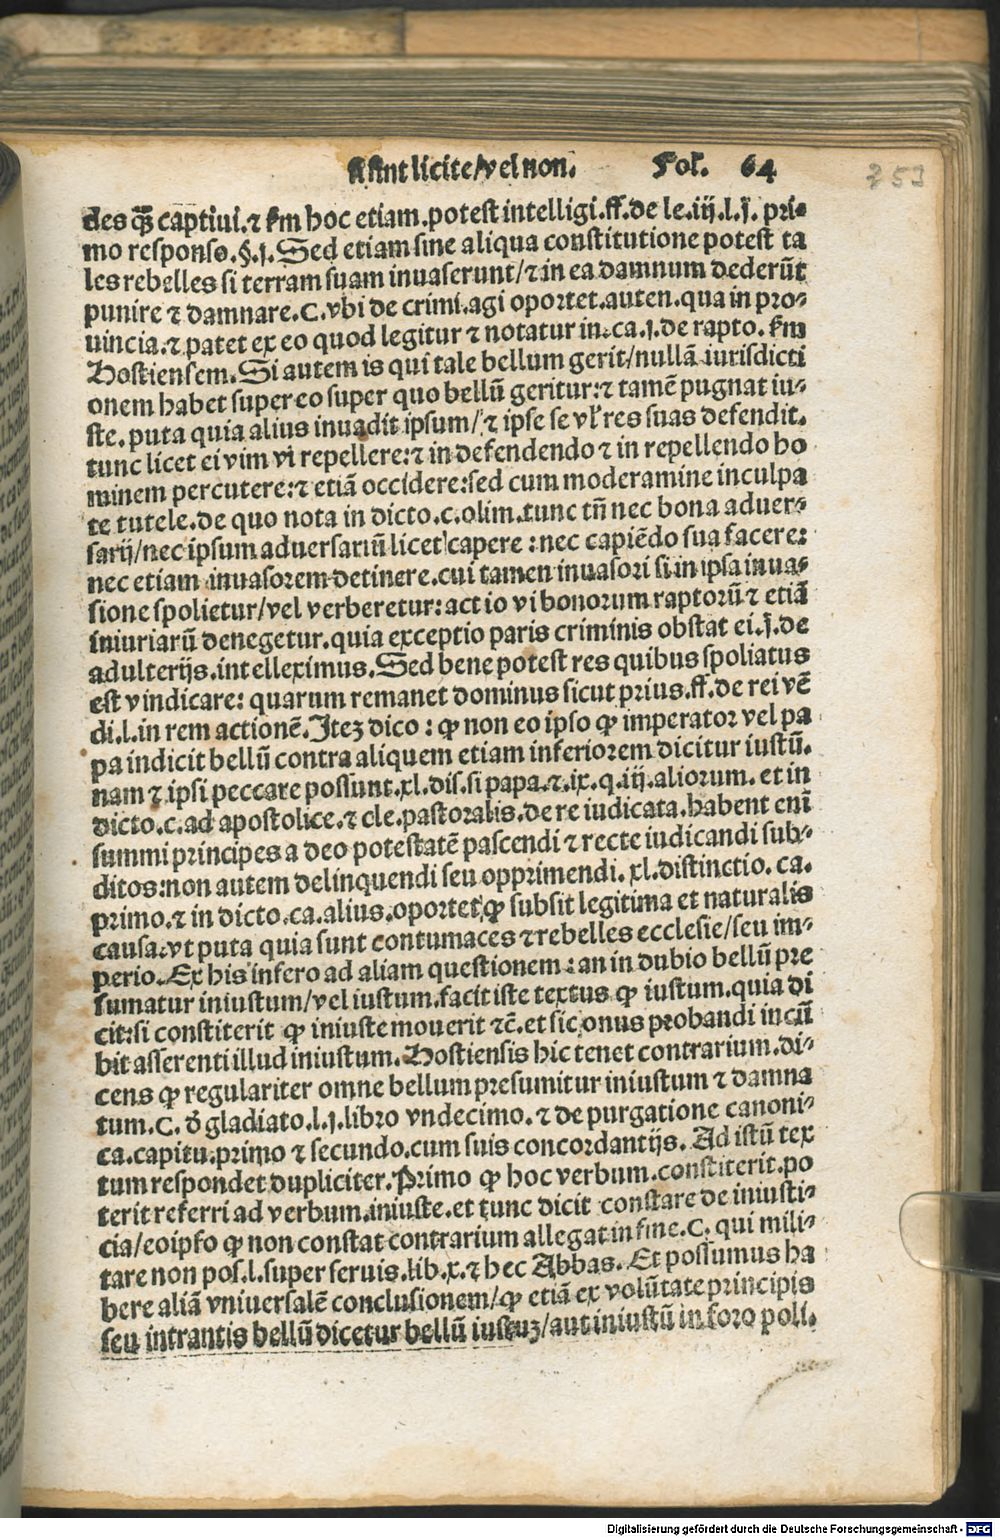 A sint licite/vel non. Fol. 64
253
des q̃ʒ captiui.⁊ ẜm hoc etiam.potest intelligi.ff.de le.iij.l.j. pri⸗
mo responso.§.j. Sed etiam sine aliqua constitutione potest ta
les rebelles si terram suam inuaserunt/⁊ in ea damnum dederũt
punire ⁊ damnare.C.vbi de crimi.agi oportet.auten.qua in pro⸗
uincia.⁊ patet ex eo quod legitur ⁊ notatur in.ca.j.de rapto. ẜm
Hostiensem. Si autem is qui tale bellum gerit/nullã iurisdicti
onem habet super eo super quo bellũ geritur:⁊ tamẽ pugnat iu⸗
ste. puta quia alius inuadit ipsum/ ⁊ ipse se vł res suas defendit.
tunc licet ei vim vi repellere:⁊ in defendendo ⁊ in repellendo ho
minem percutere:⁊ etiã occidere:sed cum moderamine inculpa
te tutele.de quo nota in dicto.c.olim.tunc tñ nec bona aduer⸗
sarij/nec ipsum aduersariũ licet capere : nec capiẽdo sua facere:
nec etiam inuasorem detinere.cui tamen inuasori si in ipsa inua⸗
sione spolietur/vel verberetur: actio vi bonorum raptorũ ⁊ etiã
iniuriarũ denegetur.quia exceptio paris criminis obstat ei.j.de
adulterijs.intelleximus. Sed bene potest res quibus spoliatus
est vindicare: quarum remanet dominus sicut prius.ff.de rei vẽ
di.l.in rem actionẽ. Itez dico : ꝙ non eo ipso ꝙ imperator vel pa
pa indicit bellũ contra aliquem etiam inferiorem dicitur iustũ.
nam ⁊ ipsi peccare possunt.xl.dis.si papa.⁊.ix.q.iij.aliorum. et in
dicto.c.ad apostolice.⁊ cle.pastoralis.de re iudicata.habent eni͂
summi principes a deo potestatẽ pascendi ⁊ recte iudicandi sub⸗
ditos:non autem delinquendi seu opprimendi. xl.distinctio. ca.
primo.⁊ in dicto.ca.alius.oportet ꝙ subsit legitima et naturalis
causa.vt puta quia sunt contumaces ⁊ rebelles ecclesie/seu im⸗
perio. Ex his infero ad aliam questionem : an in dubio bellũ pre
sumatur iniustum/vel iustum.facit iste textus ꝙ iustum.quia di
cit:si constiterit ꝙ iniuste mouerit ⁊c̃.et sic onus probandi incũ
bit asserenti illud iniustum. Hostiensis hic tenet contrarium.di⸗
cens ꝙ regulariter omne bellum presumitur iniustum ⁊ damna
tum.C. ð gladiato.l.j.libro vndecimo.⁊ de purgatione canoni⸗
ca.capitu.primo ⁊ secundo.cum suis concordantijs. Ad istũ tex
tum respondet dupliciter. Primo ꝙ hoc verbum.constiterit.po
terit referri ad verbum.iniuste.et tunc dicit constare de iniusti⸗
cia/eoipso ꝙ non constat contrarium allegat in fine.C. qui mili⸗
tare non pos.l.super seruis.lib.x.⁊ hec Abbas. Et possumus ha
bere aliã vniuersalẽ conclusionem/ꝙ etiã ex volũtate principis
seu intrantis bellũ dicetur bellũ iustuʒ/aut iniustũ in foro poli.
Digitalisierung gefördert durch die Deutsche Forschungsgemeinschaft - DFG